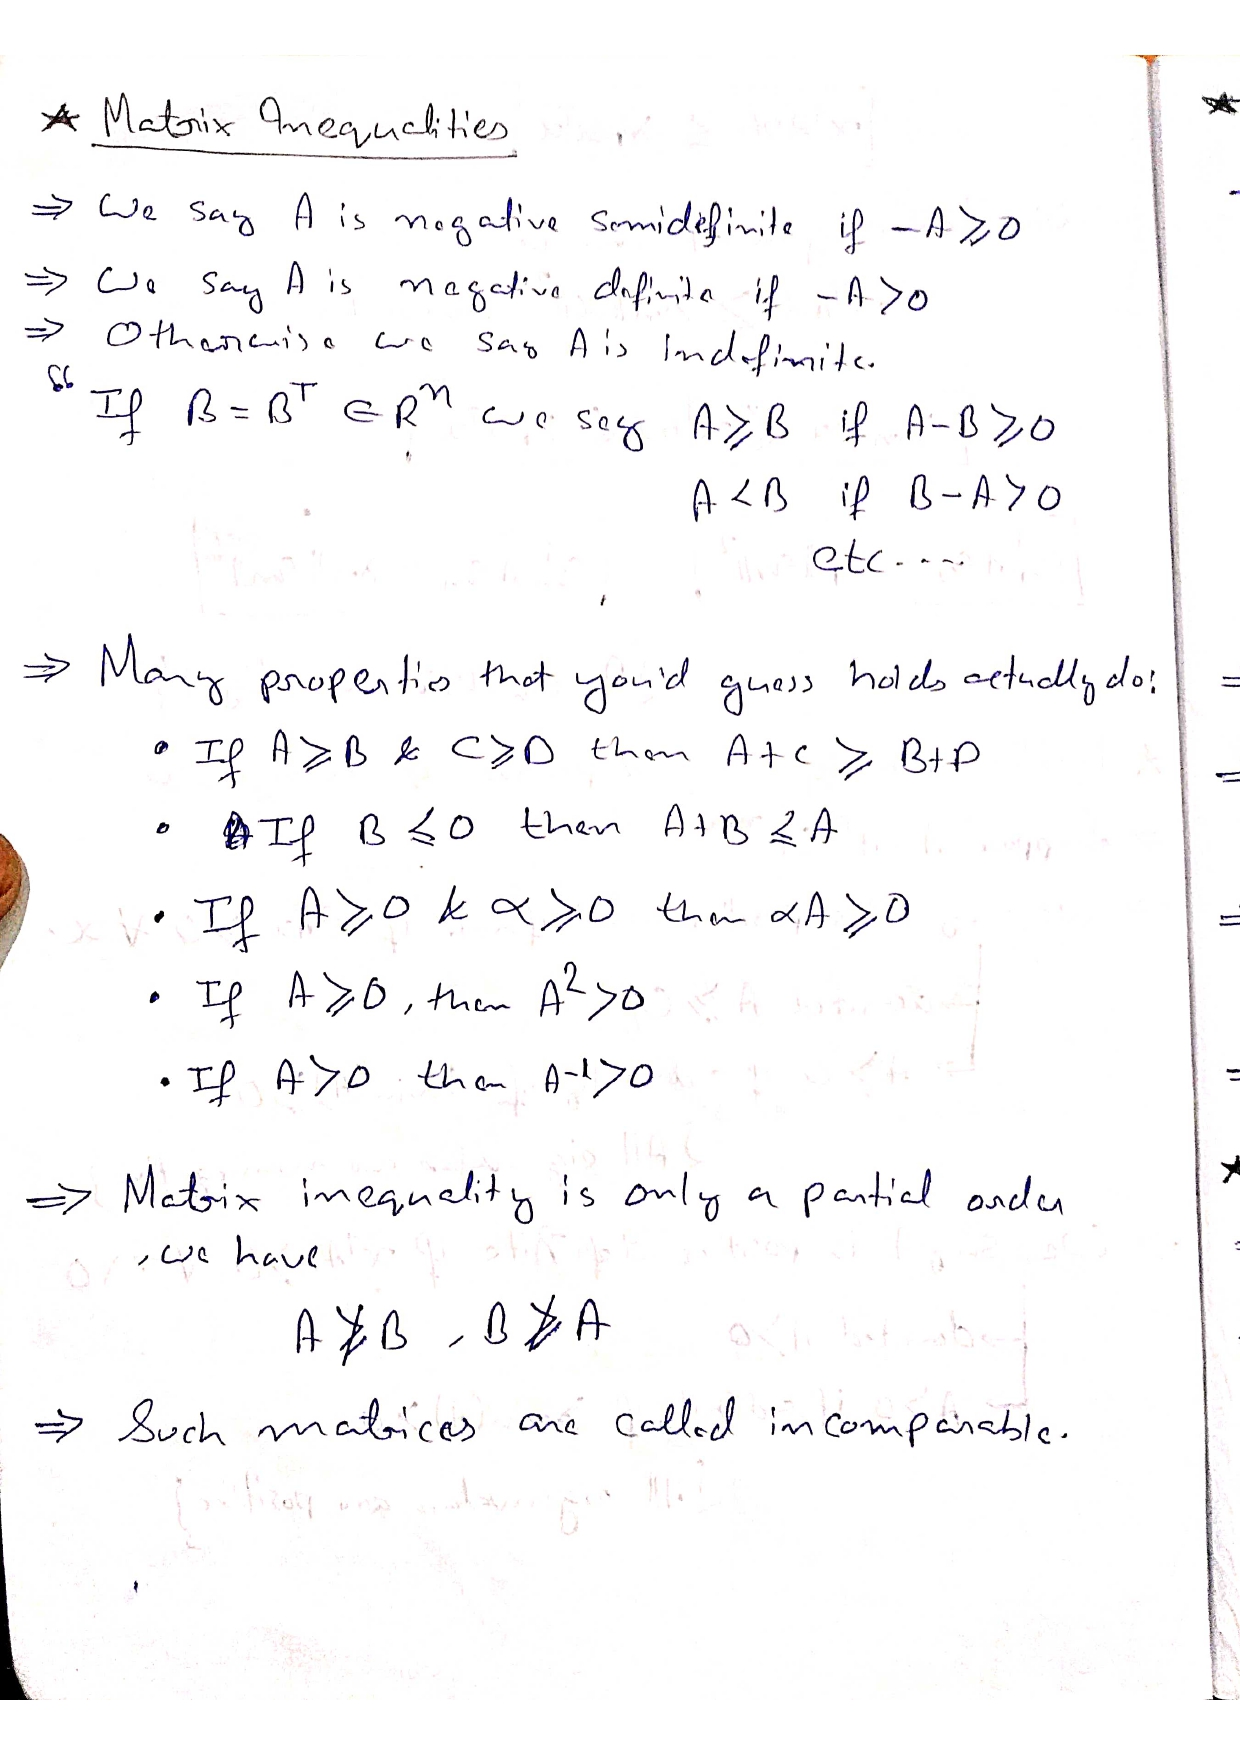 ★ Matrix Inequalities
⇒ We say A is negative semidefinite if -A ⩾ 0
⇒ We say A is negative definite if -A > 0
⇒ Otherwise we say A is Indefinite.
“ If B = Bᵀ ∈ Rⁿ we say A ⩾ B if A-B ⩾ 0
A < B if B-A > 0
etc....
⇒ Many properties that you'd guess holds actually do:
• If A ⩾ B & C ⩾ D then A+C ⩾ B+D
• If B ⩽ 0 then A+B ⩽ A
• If A ⩾ 0 & α ⩾ 0 then αA ⩾ 0
• If A ⩾ 0, then A² > 0
• If A > 0 then A⁻¹ > 0
⇒ Matrix inequality is only a partial order
, we have
A ⩾̸ B , B ⩾̸ A
⇒ Such matrices are called incomparable.